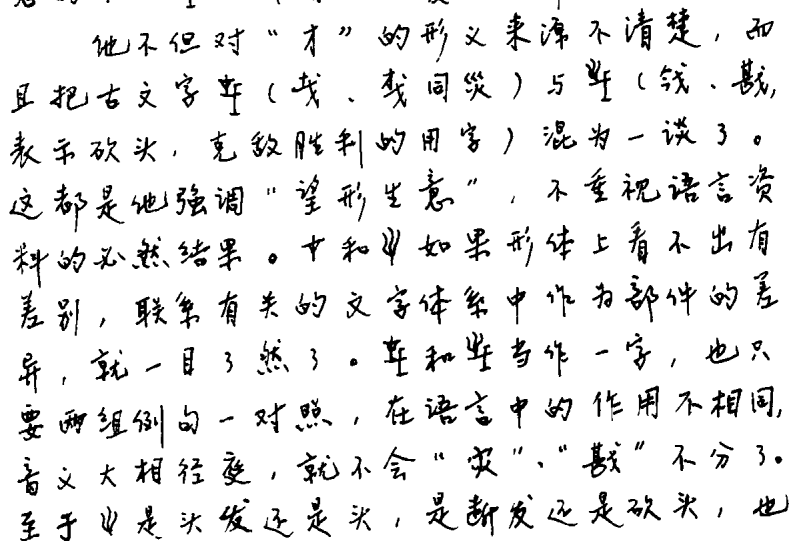 他不但对“才”的形义来源不清楚，而
且把古文字（𢦏、同災）与（戗、戡，
表示砍头，克敌胜利的用字）混为一谈了。
这都是他强调“望形生意”，不重视语言资
料的必然结果。和如果形体上看不出有
差别，联系有关的文字体系中作为部件的差
异，就一目了然了。和当作一字，也只
要两组例句一对照，在语言中的作用不相同，
音义大相径庭，就不会“灾”、“戡”不分了。
至于是头发还是头，是断发还是砍头，也